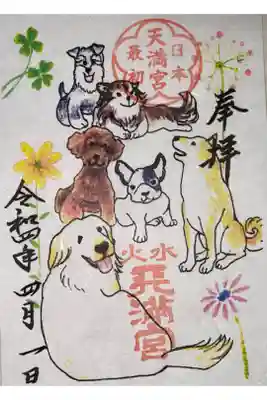 奉拝
日本
最初
天満宮
水火
天満宮
令和四年四月一日